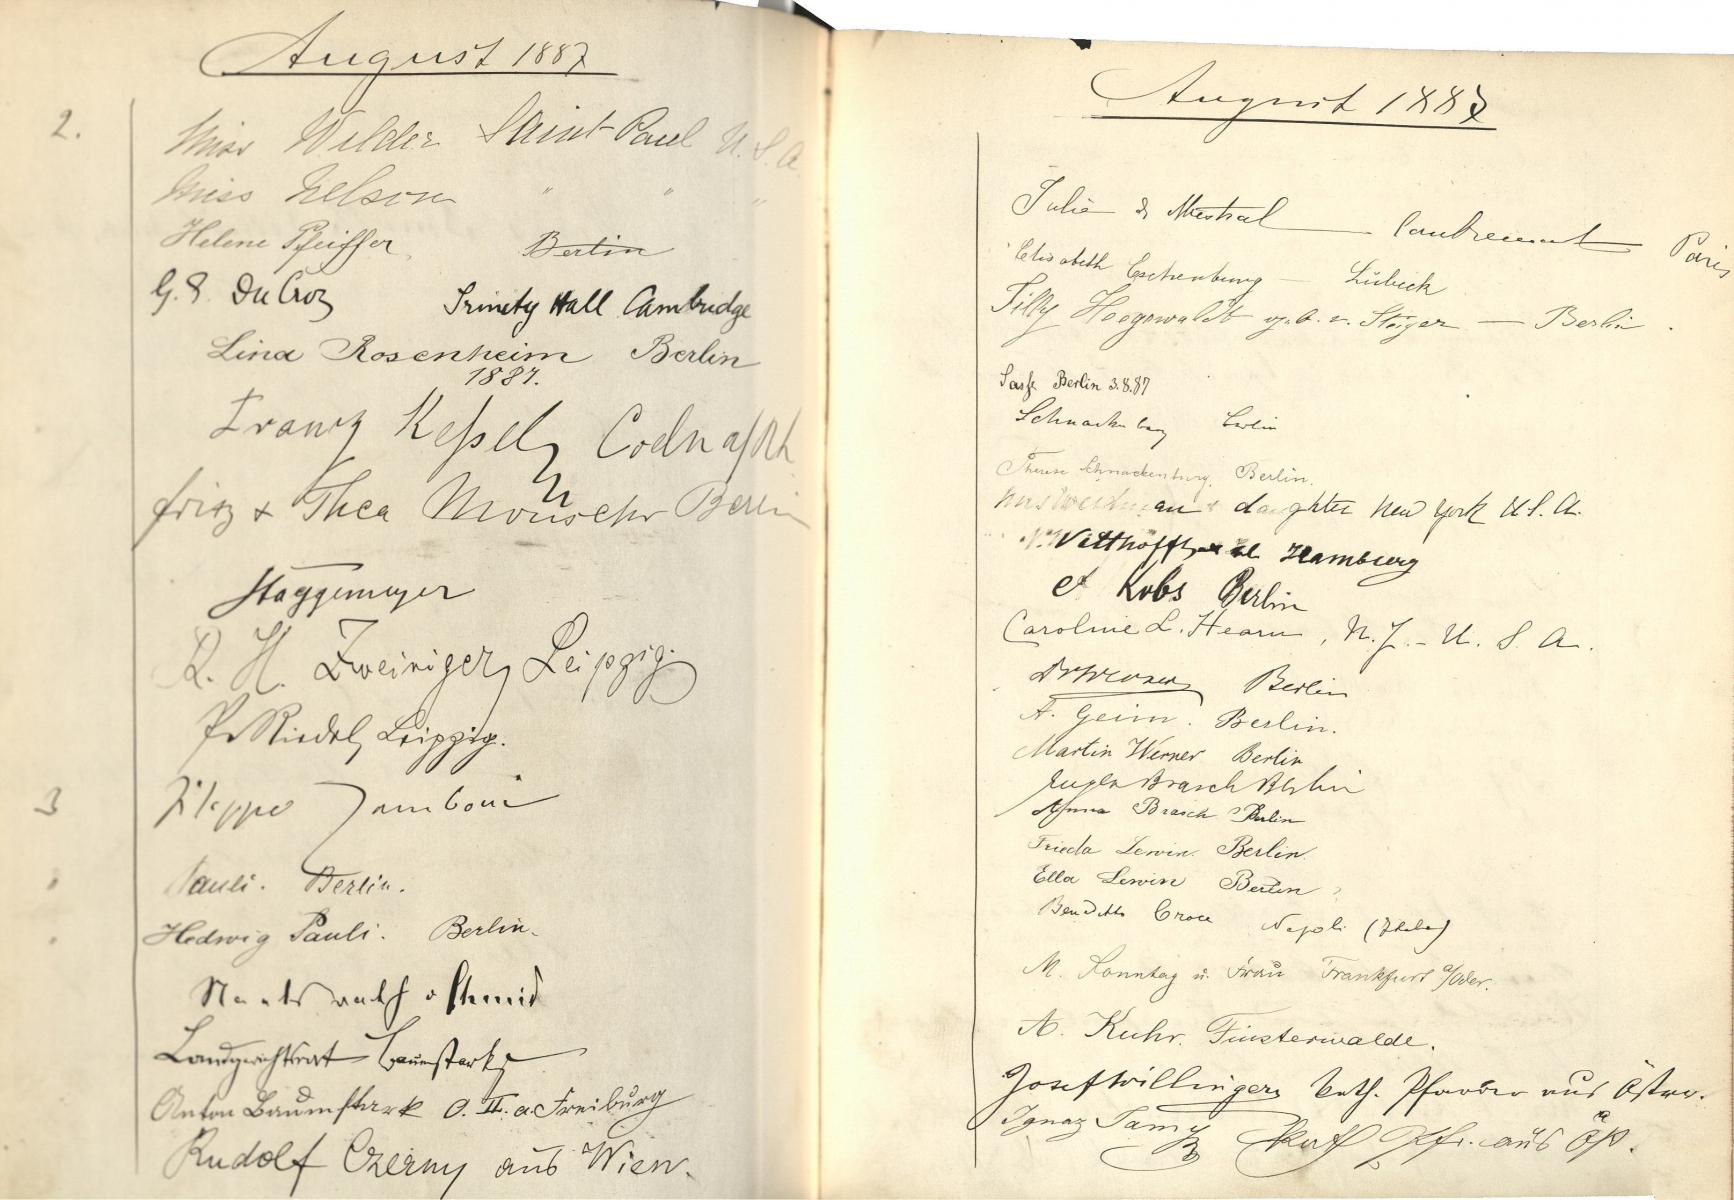 August 1887
2.
Miss Wilder Saint-Paul U. S. A
Miss Nelson " " "
Helene Pfeiffer. Berlin
G. S. Du Croz Trinity Hall Cambridge
Lina Rosenheim Berlin
1887.
Franz Kessel, Coeln a/Rh
Fritz & Thea Berlin
Haggemeyer
R. H. Zweiniger, Leipzig.
P. Riedel, Leipzig.
3
Filippo Zamboni
Pauli. Berlin.
Hedwig Pauli. Berlin.
Landgerichtsrat Baumstark
Anton Baumstark O. II. a. Freiburg
Rudolf Czerny aus Wien.
August 1887
Julie de Mestral Paris
Elisabeth Eschenburg — Lübeck
Tilly Hoegewaldt geb. v. Steiger — Berlin.
Berlin 3.8.87
Schnackenburg Berlin
Therese Schnackenburg. Berlin.
daughter New York U.S.A.
Hamburg
A Kobs Berlin
Caroline L. Hearn, N. J. - U. S. A.
Berlin
A. Geim. Berlin.
Martin Werner Berlin
Eugen Brasch Berlin
Anna Brasch Berlin
Frieda Lewin. Berlin.
Ella Lewin Berlin
Benedetto Croce Napoli (Italia)
M. Sonntag u. Frau Frankfurt a/Oder.
A. Kuhr. Finsterwalde.
Josef Willinger, kath. Pfarrer aus Östrr.
Ignaz aus Öst.